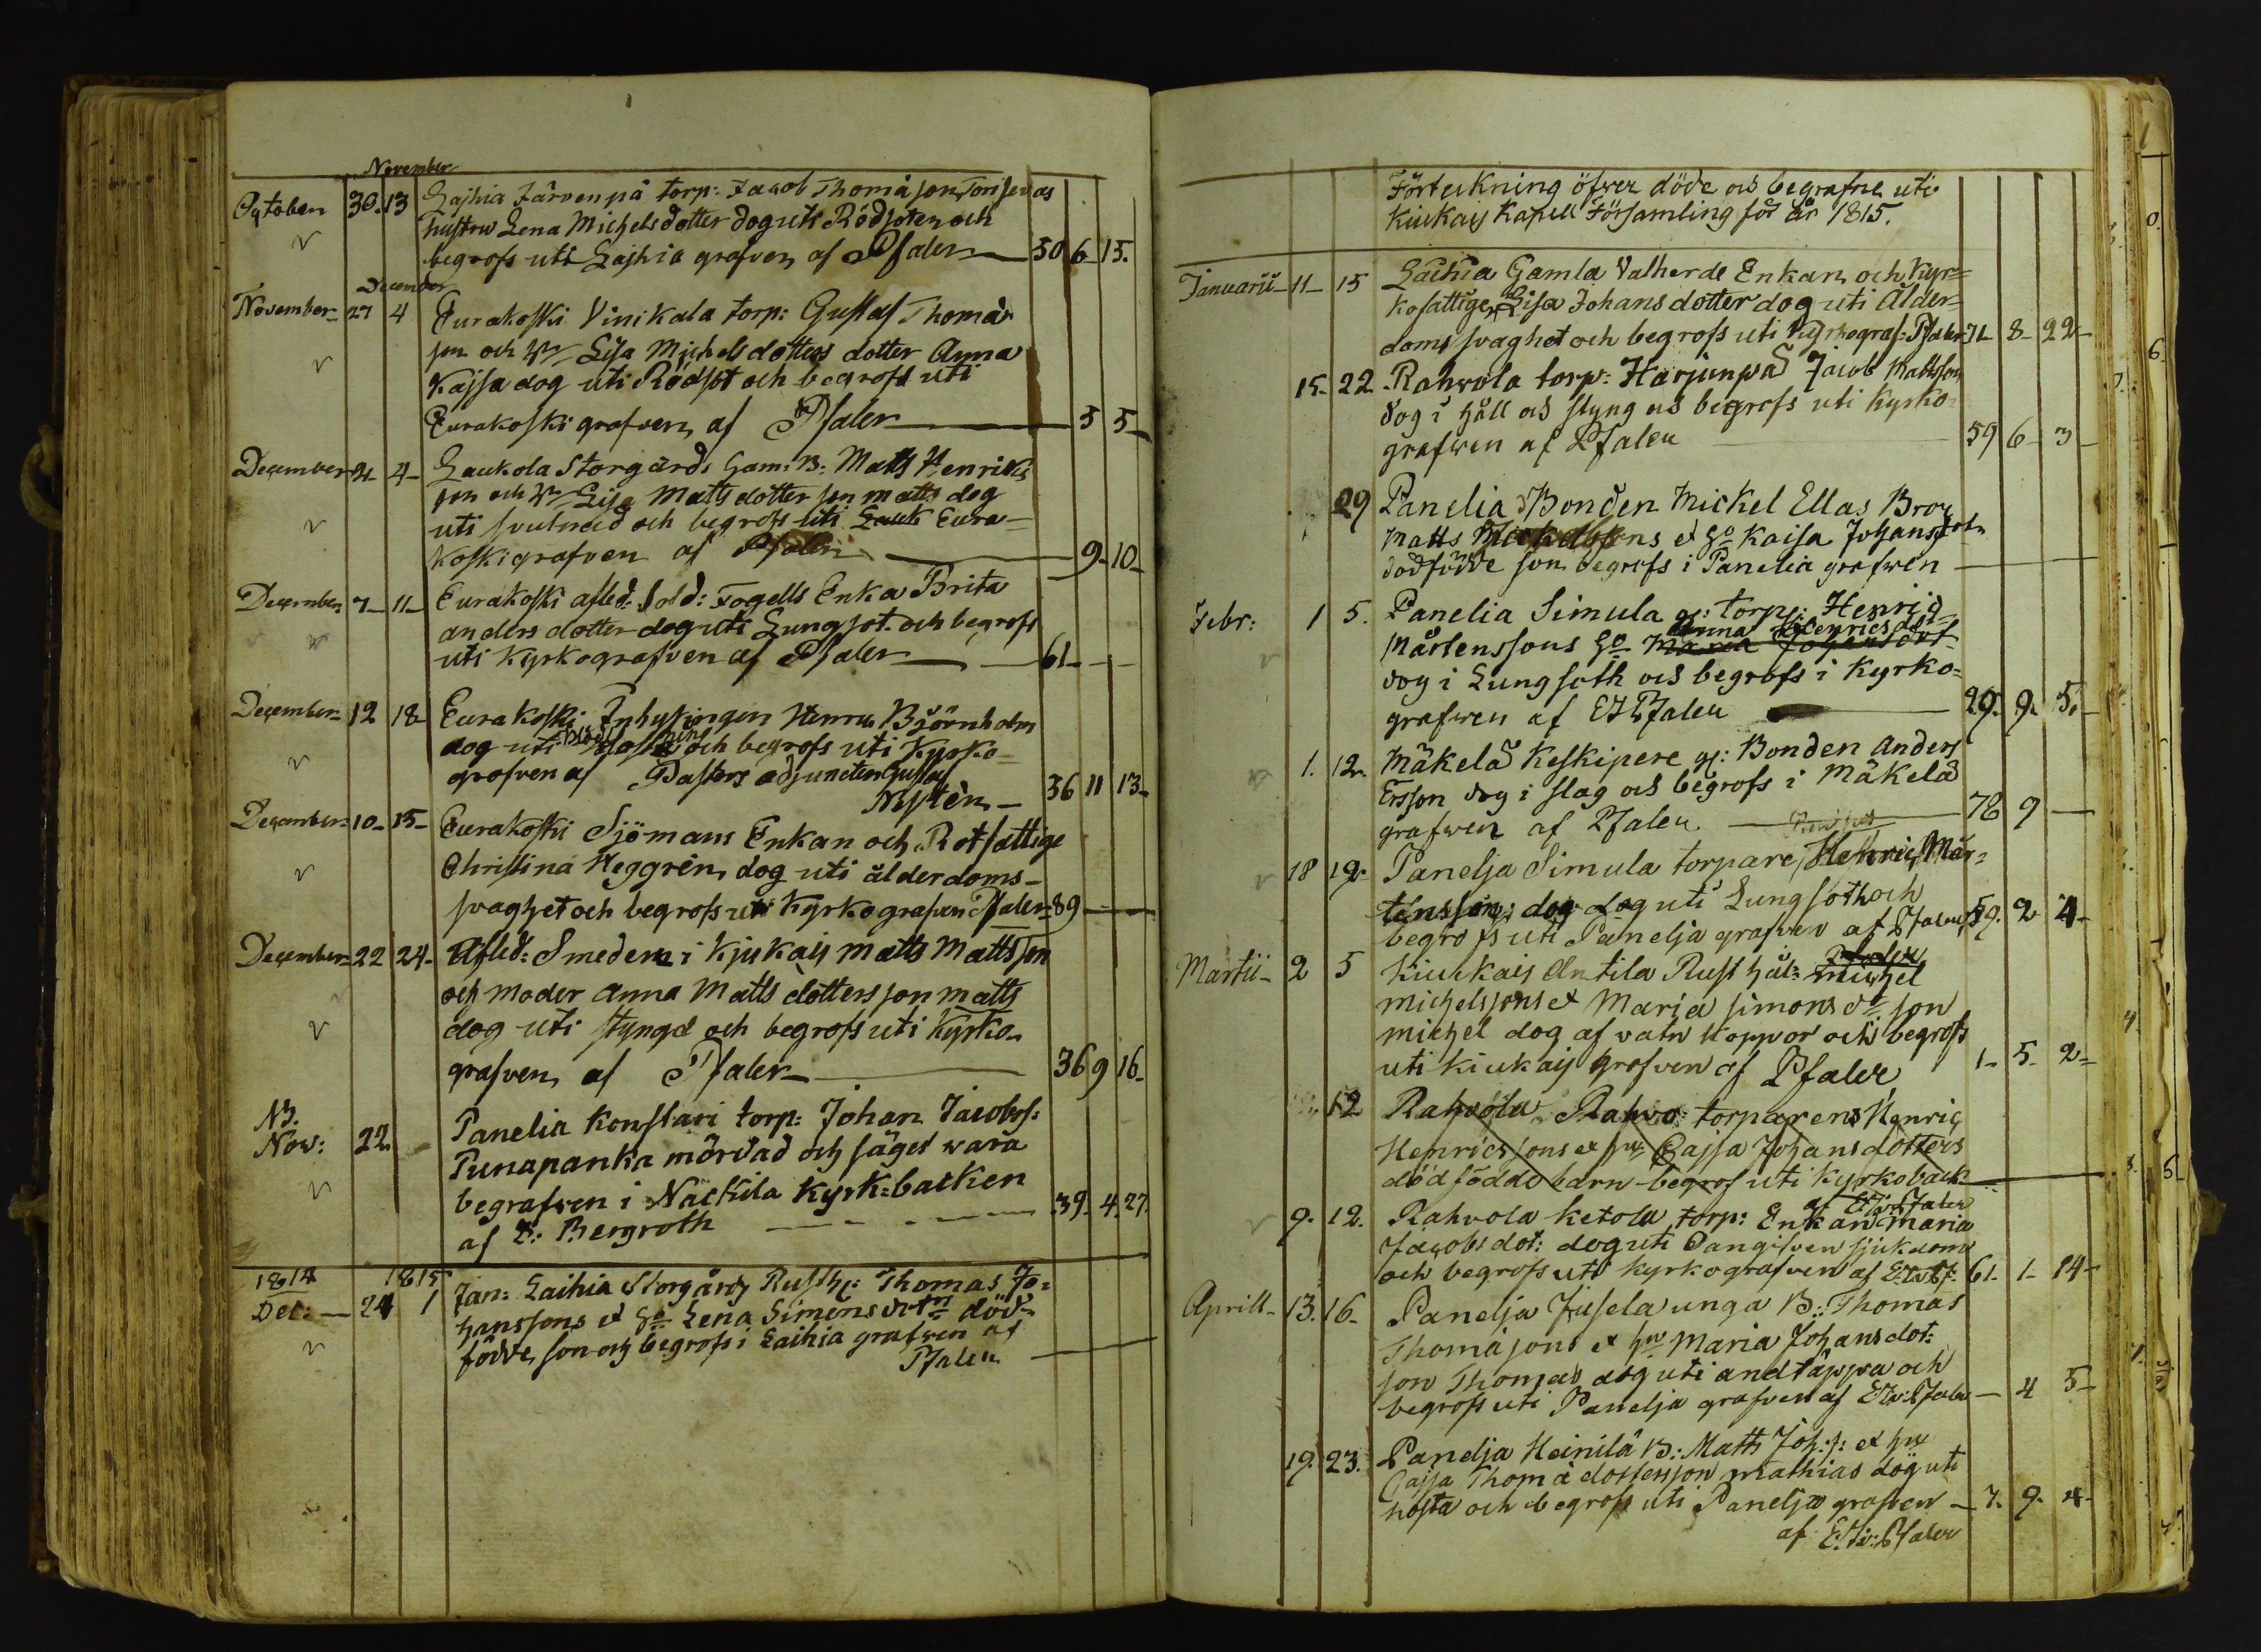 November
October 30. 13 Lajhia Järvenpä torp: Jacob Thomäson
hustru Lena Michelsdotter dog uti Rödsoten och
begrofs uti Lajhia grafven af Pfaler 50 6 15.
December
November 27 4 Eurakoski Vinikala torp: Gustaf Thomä
son och H Lisa Michelsdotters dotter Anna
Kajsa dog uti Rödsot och begrofs uti
Eurakoski grafven af Pfaler 5 5
December 2 4 Laukola Storgårds Gam: B: Matts Henriks
son och H Lisa Mattsdotter son Matts dog
uti och begrofs uti Lauk Eura-
koski grafven af Pfaler 9 10
December 7 11 Eurakoski afled: Sold: Fogells Enka Brita
Anders dotter dog uti Lungsot och begrofs
uti Kyrkografven af Pfaler 61
December 12 18 Eurakoski Inhysingen Henric Björnholm
dog uti och begrofs uti Kyrko-
grafven af Pastors adjuncten Gustaf
Nystén 36 11 13
December 10 15 Eurakoski Sjömans Enkan och Rotfattige
Christina Heggrén dog uti ålderdoms-
svaghet och begrofs uti Kyrkografven Pfaler 89
December 22 24 Afled: Smeden i Kjukais Matts Mattsson
och moder Anna Matts dotters son Matts
dog uti styngd och begrofs uti Kyrko-
grafven af Pfaler 36 9 16
NB.
Nov: 22 Panelia Konstari torp: Johan Jacobss:
Punapanka mördad och säges wara
begrafven i Nackila Kyrk=backen
af Bergroth 39. 4. 27.
1814 1815
Dec: 24 1 Jan: Laihia Storgårds Rusth: Thomas Jo=
hanssons et Lena Simonsdotn död=
födde son och begrofs i Laihia grafwen af
Pfaler
Förteckning öfwer döde och begrafne uti
Kiukais Kapell Församling för år 1815.
Januarii 11 15 Laihia Gamla Valherde Enkan och Kyr=
kofattige Lisa Johansdotter dog uti Ålder=
doms svaghet och begrofs uti Kyrkograf: Pfaler 71 8 22
15. 22. Rahvola torp: Harjunpä Jacob Mattsson
dog i håll och styng och begrofs uti Kyrko=
grafwen af Pfaler 59 6 3
29 Panelia Bonden Mickel Ellas Bror
Matts Mickelssons et Kaisa Johansdotn
dödfödde son begrofs i Panelia grafwen
Febr: 1 5. Panelia Simula torp: Henric
Anna Henricsdot
Mårtenssons Maria Johansdot
dog i Lungsoth och begrofs i Kyrko=
grafwen af Pfaler 29. 9. 5.
1. 12. Mäkelä Keskipere Bonden Anders
Ersson dog i slag och begrofs i Mäkelä
grafwen af Pfaler 78 9
18 19. Panelja Simula torpare Henric Mår=
tensson dog dog uti Lungsoth och
begrofs uti Panelja grafven af Pfaler 59. 2 4
Martii 2 5 Kiukais Antila Rusthål: Michel
Michelssons et Maria Simonsdr son
Michel dog af vatn Koppor och begrofs
uti Kiukais grafven af Pfaler 1 5 2
12 Rahvola Rahvo: torparens Henric
Henricssons et hu Cajsa Johansdotters
dödfödde barn begrof uti Kyrkoback
af Pfaler
9. 12. Rahvola Ketola torp: Enkan Maria
Jacobsdot: dog uti sjukdom
och begrofs uti Kyrkografven af 61 1 14
Aprill 13. 16 Panelja Jusela unga B: Thomas
Thomäsons et hu Maria Johansdot:
son Thomas dog uti andtäppa och
begrofs uti Panelja grafven af Pfaler 4 5
19. 23. Panelja Heinilä B: Matts Joh:s: et hu
Cajsa Thomä dotters son Mathias dog uti
hosta och begrofs uti Panelja grafven 7. 9. 4
af Pfaler